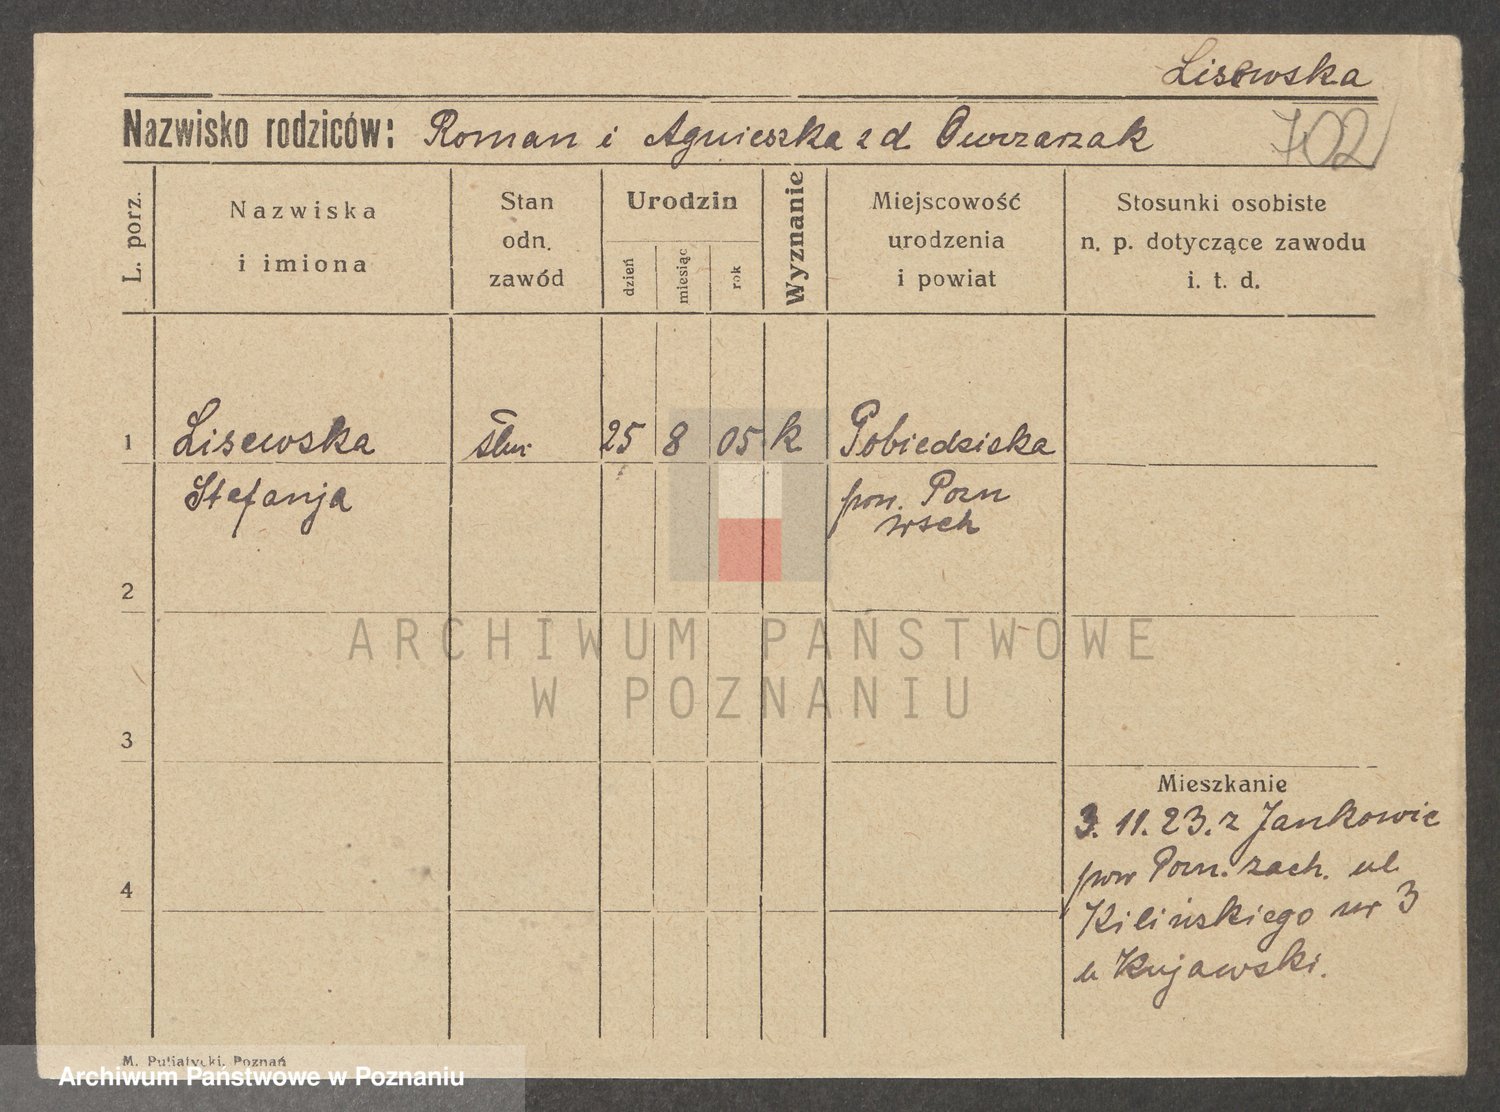 Lisewska
Nazwisko rodziców: Roman i Agnieszka z d. Owczarzak
702
L. porz.
Nazwiska
i imiona
Stan
odn.
zawód
Urodzin
dzień
miesiąc
rok
Wyznanie
Miejscowość
urodzenia
i powiat
Stosunki osobiste
n. p. dotyczące zawodu
i. t. d.
1 Lisewska służ. 25 8 05 k Pobiedziska
Stefanja pow. Pozn
wsch
2
3
4
Mieszkanie
3. 11. 23. z Jankowic
pow Pozn. zach. ul
Kilińskiego nr 3
u Kujawski.
ARCHIWUM PAŃSTWOWE
W POZNANIU
M. Putiatycki, Poznań
Archiwum Państwowe w Poznaniu